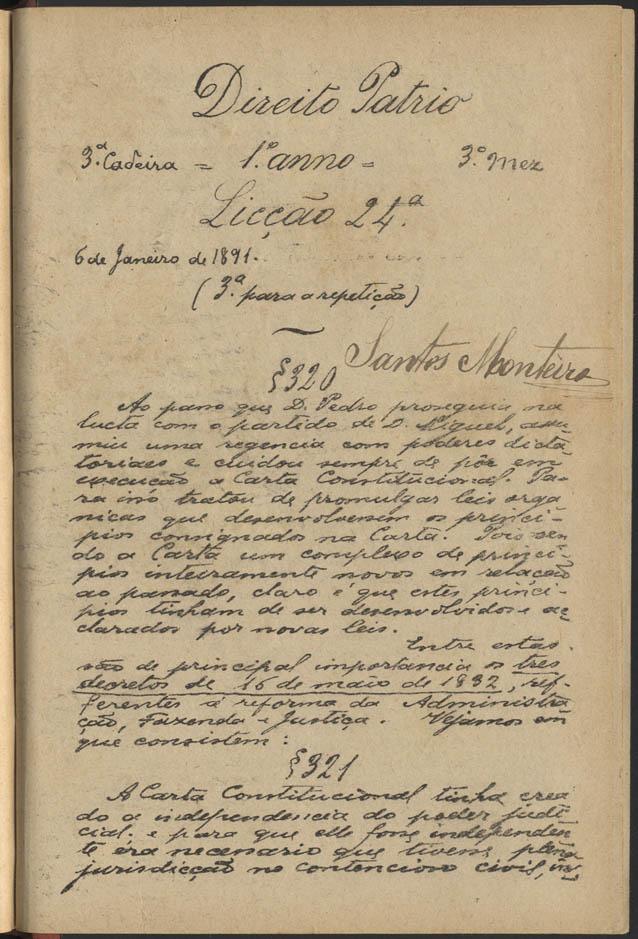 Direito Patrio
3.ª Cadeira = 1.º anno = 3.º Mez
Licção 24.ª
6 de Janeiro de 1891.
(3.ª para a repetição)
Santos Monteiro
§ 320
Ao passo que D. Pedro proseguia na
lucta com o partido de D. Miguel, assu-
miu uma regencia com poderes dicta-
toriaes e cuidou sempre de pôr em
execução a Carta Constitucional. Pa-
ra isso tratou de promulgar leis orga
nicas que desenvolvessem os princi-
pios consignados na Carta. Pois sen-
do a Carta um complexo de princi-
pios inteiramente novos em relação
ao passado, claro é que estes princi-
pios tinham de ser desenvolvidos e ac-
clarados por novas leis.
Entre estas
são de principal importancia os tres
decretos de 16 de maio de 1832, ref-
ferentes á reforma da Administra
ção, Fazenda e Justiça. Vejamos em
que consistem:
§ 321
A Carta Constitucional tinha crea
do a independencia do poder judi-
cial. e para que elle fosse independen
te éra necessario que tivesse plena
jurisdicção no contencioso civil,